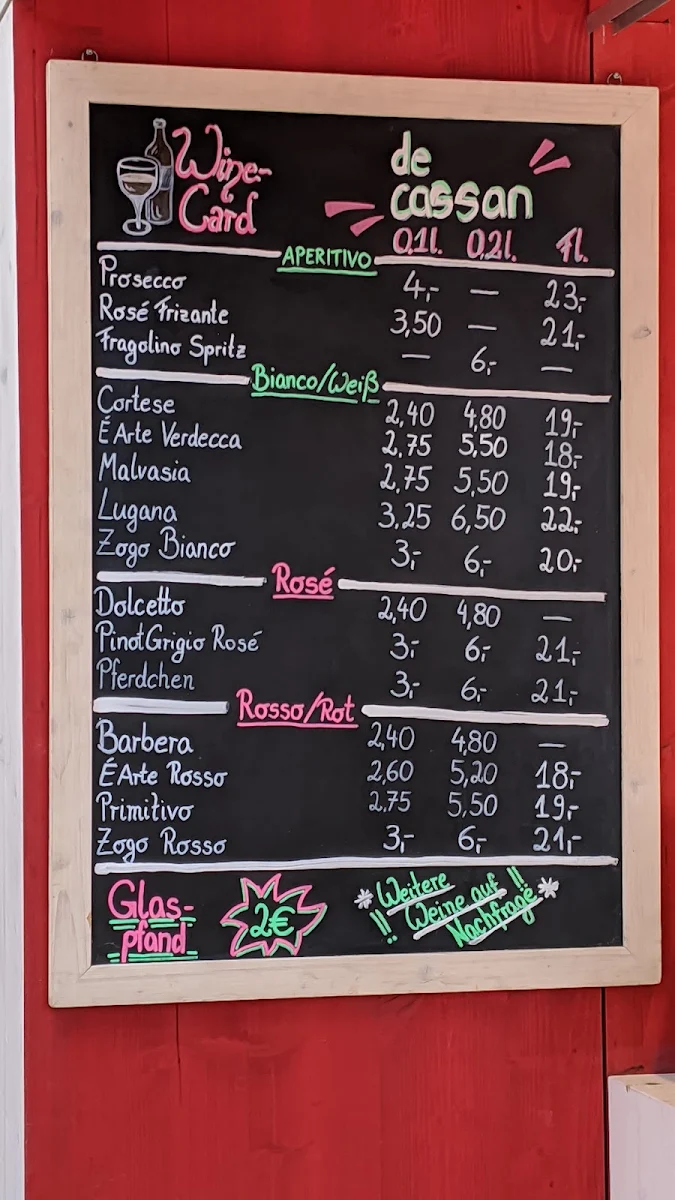 Wine-
Card
de
cassan
0,1l. 0,2l. Fl.
APERITIVO
Prosecco 4,- — 23,-
Rosé Frizante 3,50 — 21,-
Fragolino Spritz — 6,- —
Bianco/Weiß
Cortese 2,40 4,80 19,-
É Arte Verdecca 2,75 5,50 18,-
Malvasia 2,75 5,50 19,-
Lugana 3,25 6,50 22,-
Zogo Bianco 3,- 6,- 20,-
Rosé
Dolcetto 2,40 4,80 —
Pinot Grigio Rosé 3,- 6,- 21,-
Pferdchen 3,- 6,- 21,-
Rosso/Rot
Barbera 2,40 4,80 —
É Arte Rosso 2,60 5,20 18,-
Primitivo 2,75 5,50 19,-
Zogo Rosso 3,- 6,- 21,-
Glas-
pfand
2€
* Weitere
!! Weine auf !! *
Nachfrage